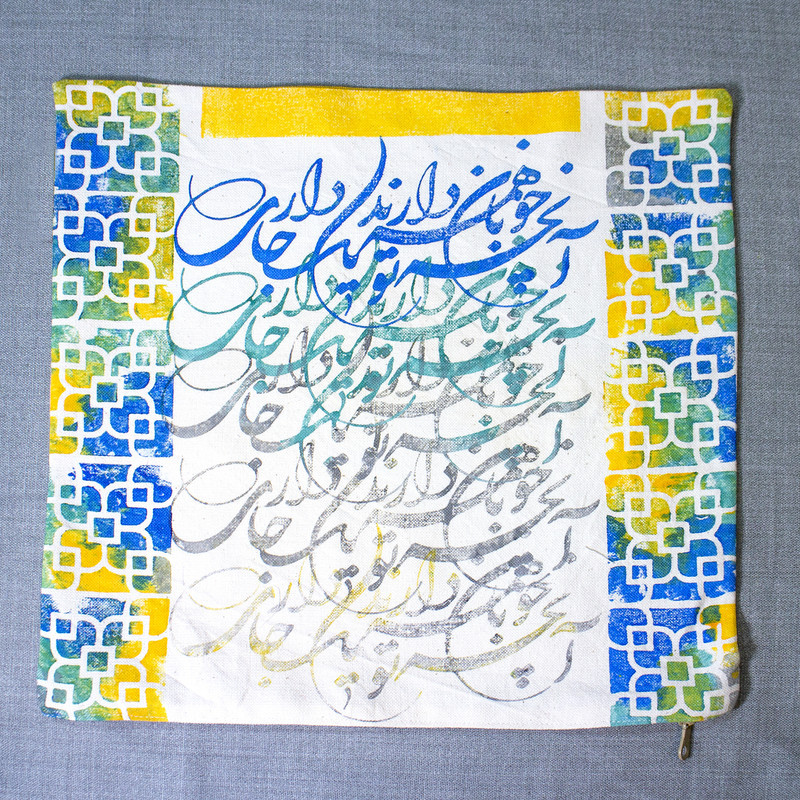 آنچه خوبان همه دارند تو یکجا داری
آنچه خوبان همه دارند تو یکجا داری
آنچه خوبان همه دارند تو یکجا داری
آنچه خوبان همه دارند تو یکجا داری
آنچه خوبان همه دارند تو یکجا داری